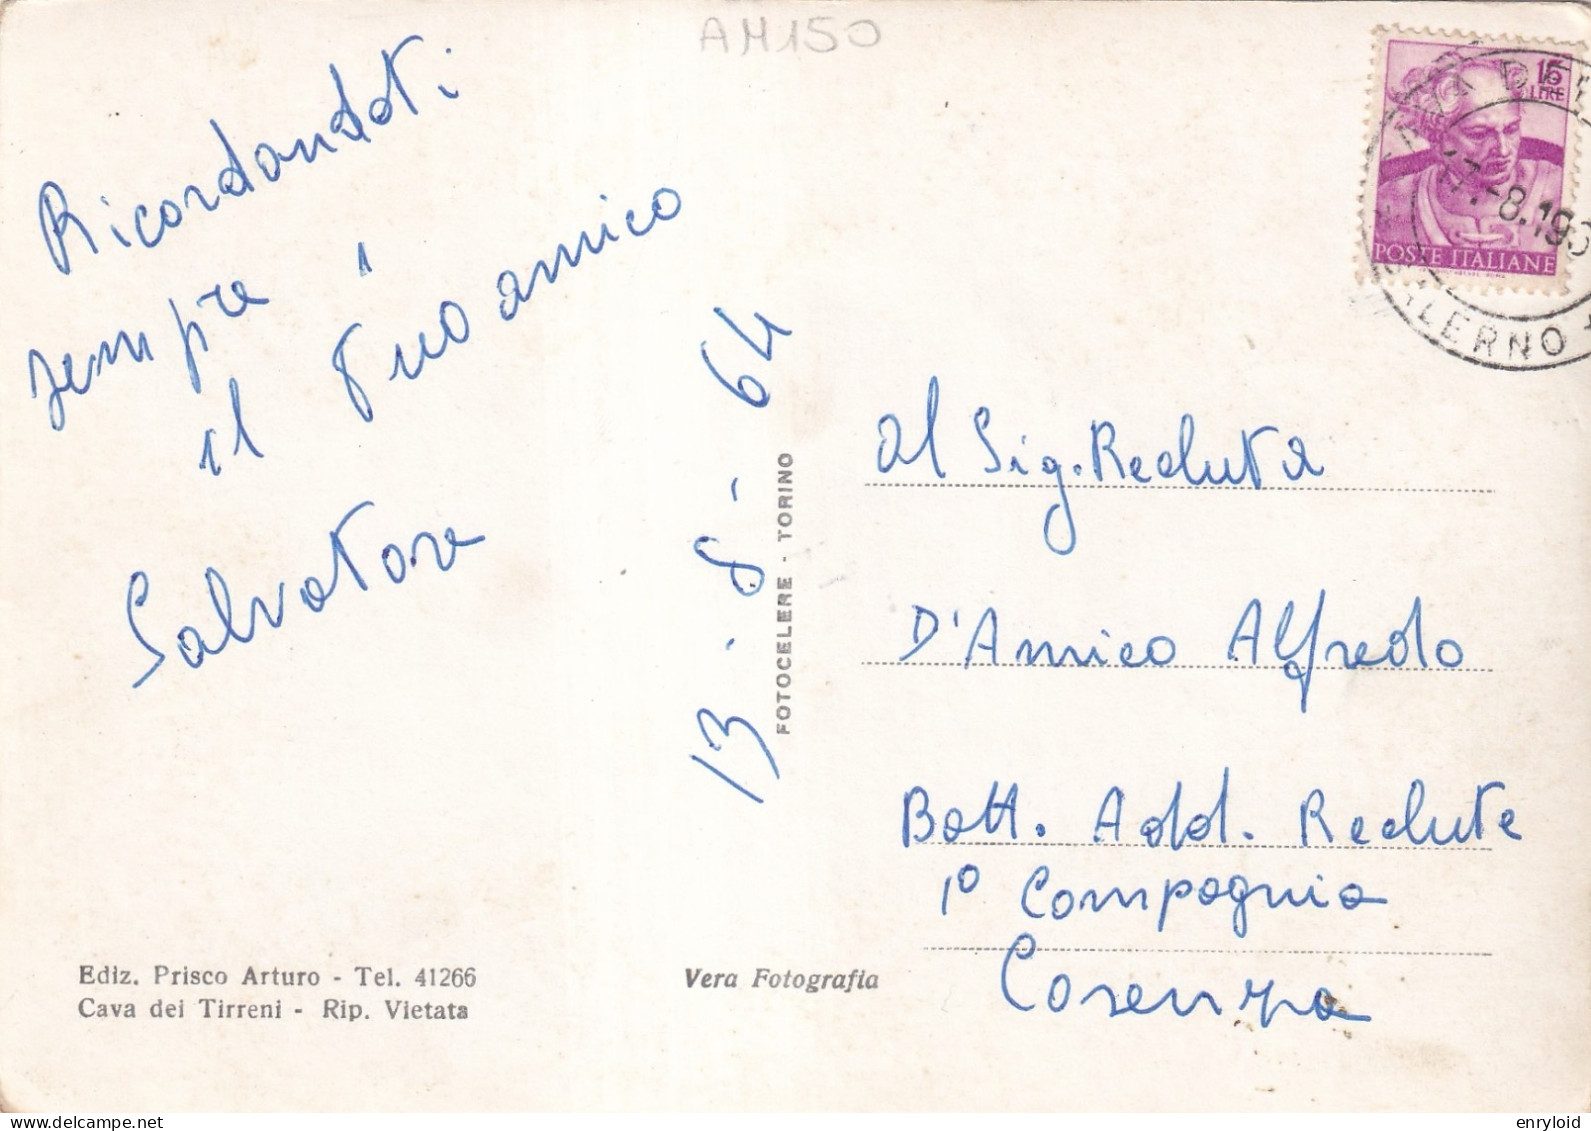 AM150
Ricordandoti
sempre
il Tuo amico
Salvatore
13-8-64
FOTOCELERE - TORINO
15
LIRE
POSTE ITALIANE
-8.19
LERNO
Al Sig. Recluta
D'Amico Alfredo
Batt. Add. Reclute
1º Compagnia
Cosenza
Ediz. Prisco Arturo - Tel. 41266
Cava dei Tirreni - Rip. Vietata
Vera Fotografia
enryloid